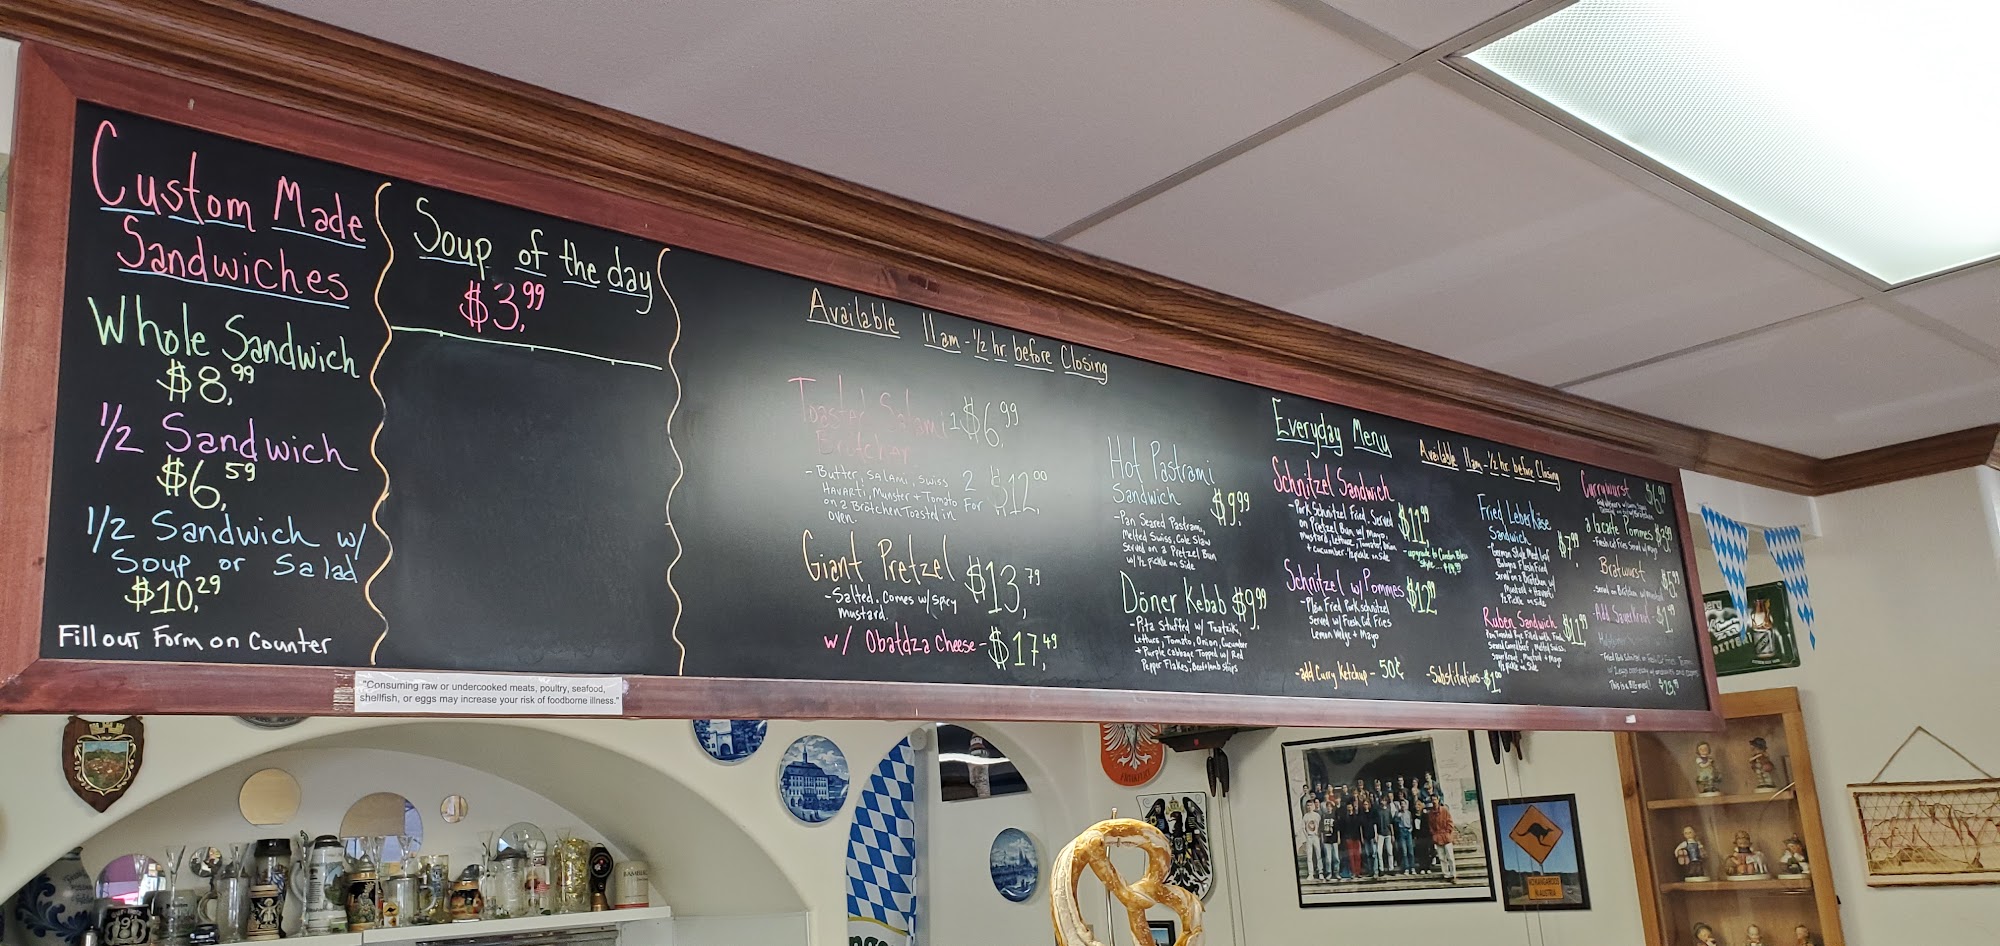 Custom Made
Sandwiches
Whole Sandwich
$8,99
1/2 Sandwich
$6,59
1/2 Sandwich w/
Soup or Salad
$10,29
Fill out Form on Counter
Soup of the day
$3,99
Available 11am - 1/2 hr. before Closing
Toasted Salami 1 $6,99
Brötchen
- Butter, Salami, Swiss 2 $12,00
Havarti, Munster + Tomato For
on 1/2 Brötchen Toasted in
oven.
Giant Pretzel $13,79
- Salted. Comes w/ Spicy
mustard.
w/ Obatdza Cheese - $17,49
Hot Pastrami
Sandwich $9,99
- Pan Seared Pastrami,
Melted Swiss, Cole Slaw
Served on a Pretzel Bun
w/ 1/2 pickle on Side
Döner Kebab $9,99
- Pita Stuffed w/ Tzatziki,
Lettuce, Tomato, Onion, Cucumber
+ Purple Cabbage Topped w/ Red
Pepper Flakes, Beef+lamb strips
Everyday Menu
Available 11am - 1/2 hr. before Closing
Schnitzel Sandwich
$11,99
- Pork Schnitzel Fried, Served
on Pretzel Bun w/ Mayo,
Mustard, Lettuce, Tomato, Onion
+ cucumber. 1/2 pickle on Side
- upgrade to Cordon Bleu
Style...
Schnitzel w/ Pommes $12,99
- Plain Fried Pork Schnitzel
Served w/ Fresh Cut Fries
Lemon Wedge + Mayo
- add Curry Ketchup - 50¢
- Substitutions - $1,00
Fried Leberkäse
Sandwich $7,99
- German Style Meat loaf
Bologna Flash Fried
Served on a Brötchen w/
Mustard + Havarti
1/2 Pickle on Side
Ruben Sandwich $11,99
Served Corned Beef, Melted Swiss,
Sour Kraut, Mustard + Mayo
1/2 pickle on Side
Currywurst $6,99
a la carte Pommes $3,99
- Fresh Cut Fries Served w/ Mayo
Bratwurst $5,99
- Served on Brötchen w/ Mustard
- Add Sauerkraut - $1,99
This is a BIG meal!
"Consuming raw or undercooked meats, poultry, seafood,
shellfish, or eggs may increase your risk of foodborne illness."
FRANKFURT